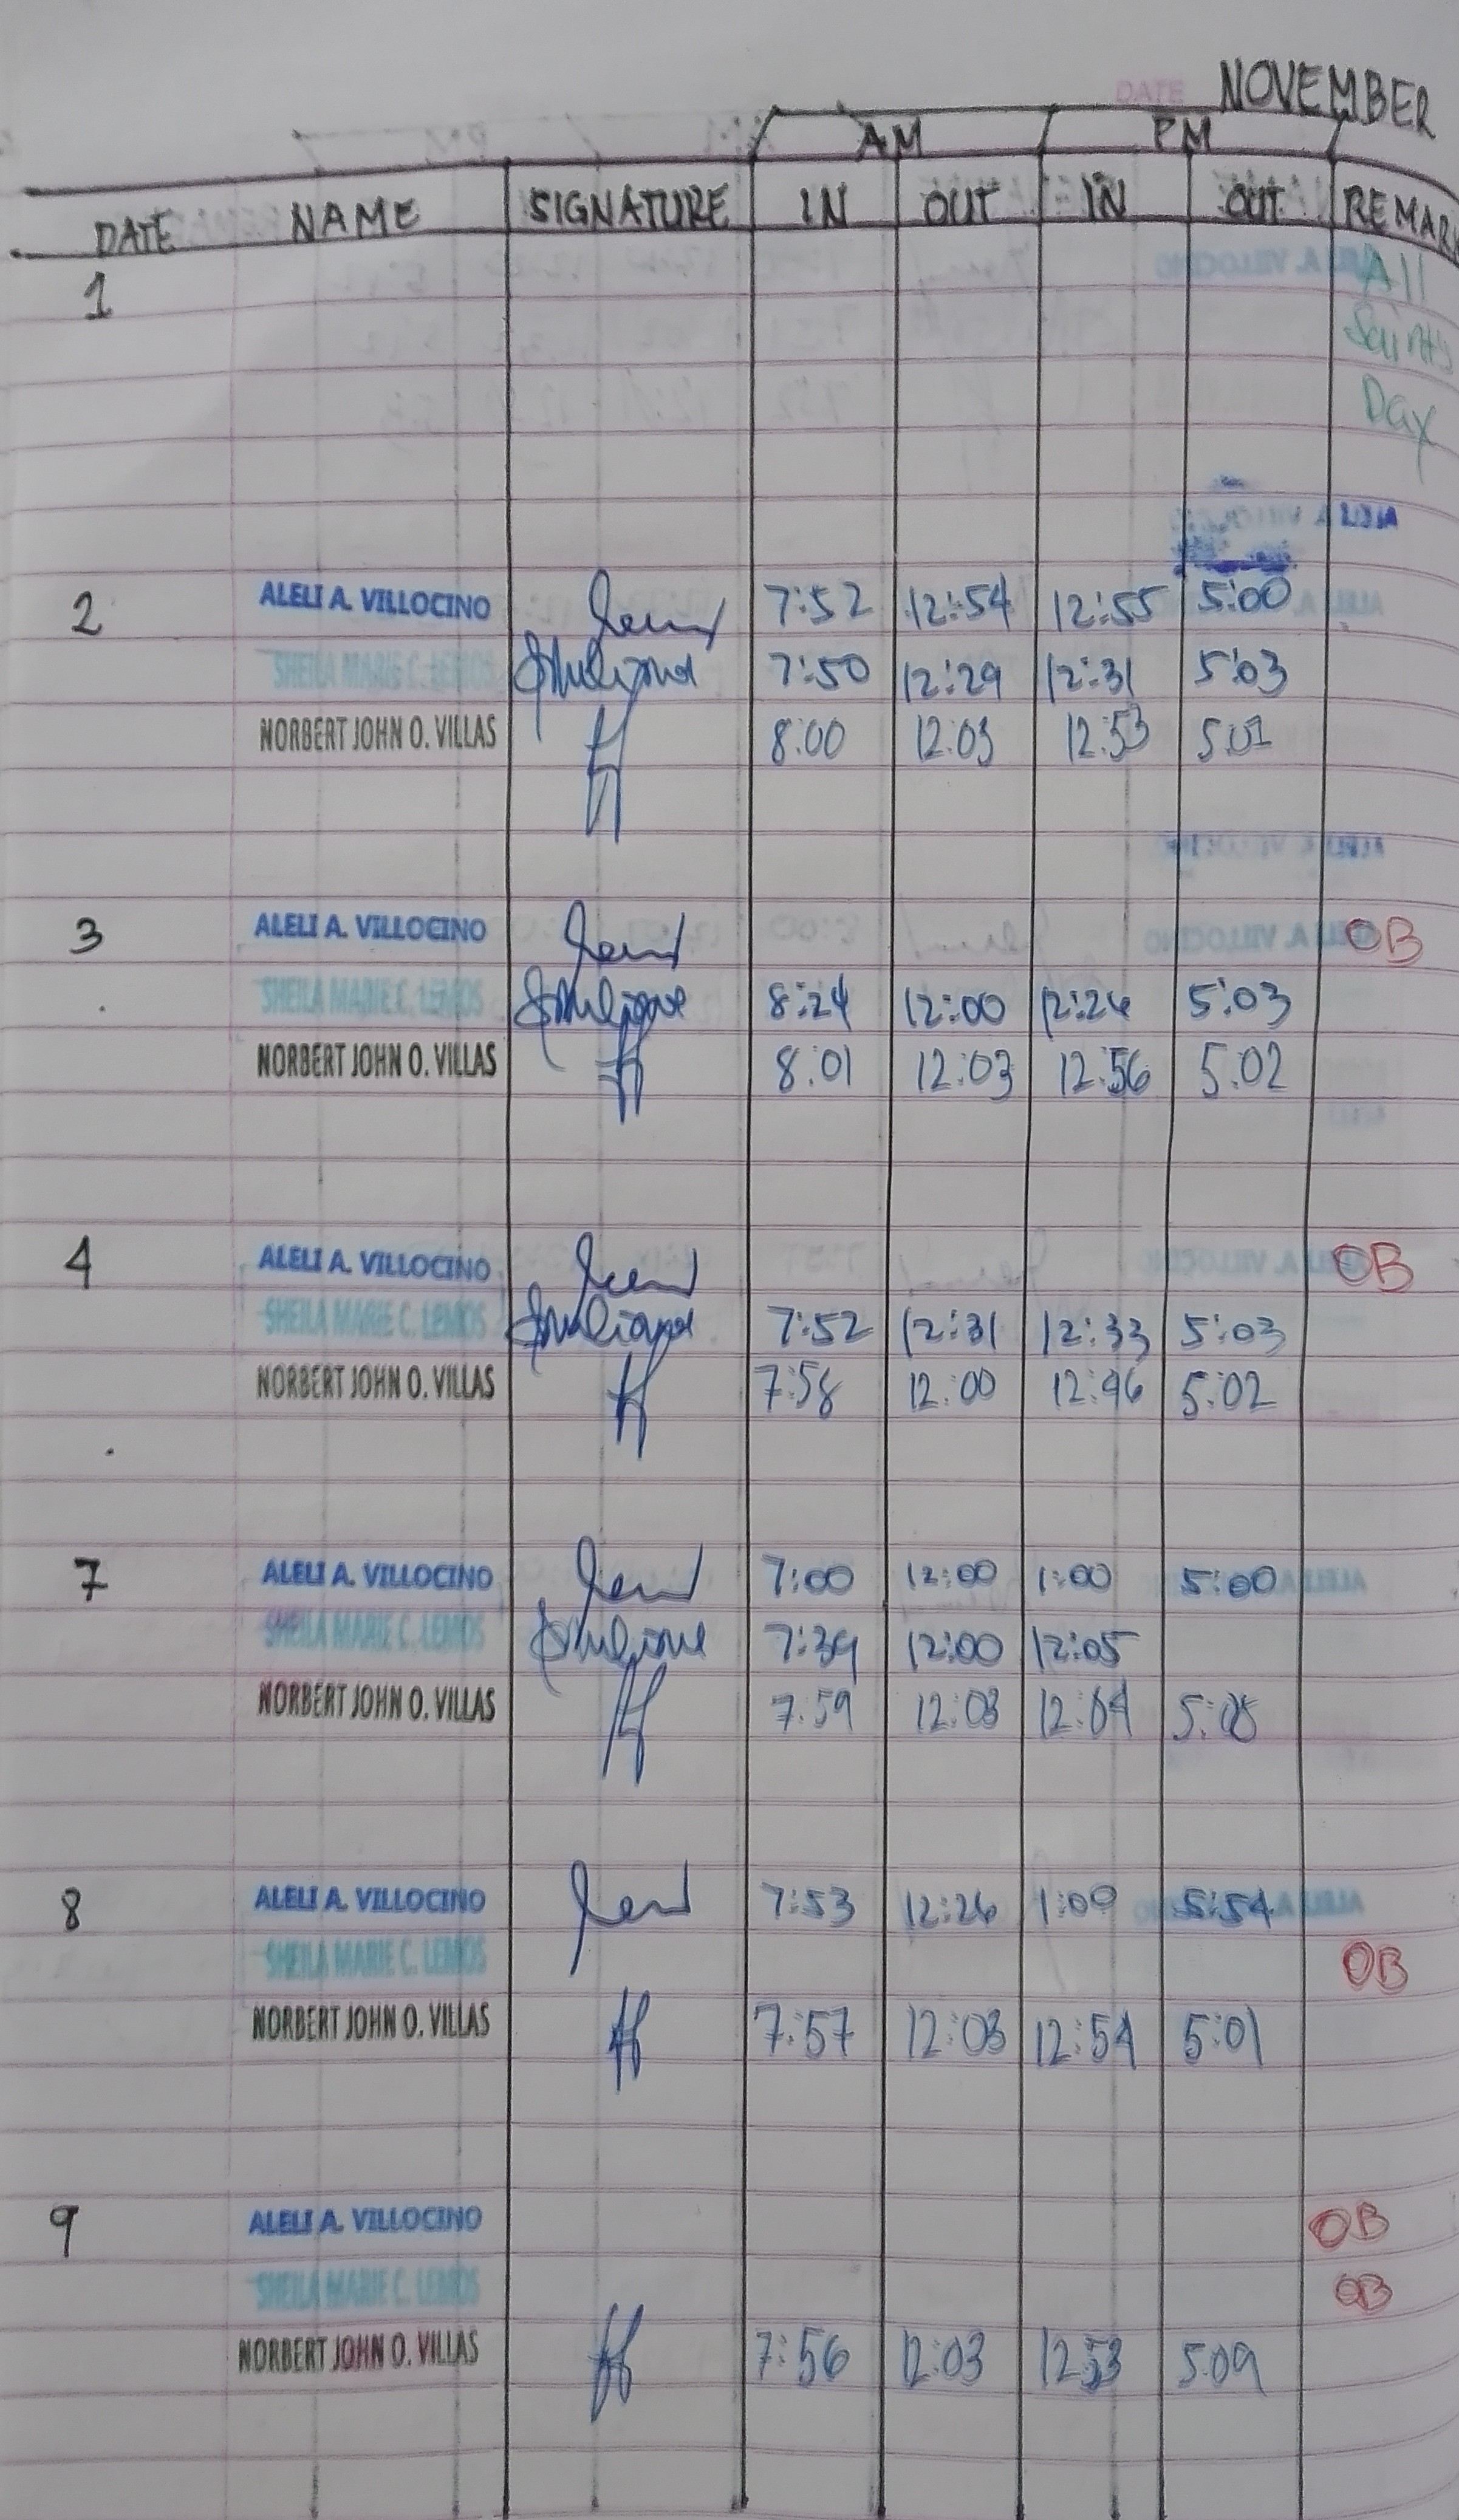 DATE NOVEMBER
AM PM
DATE NAME SIGNATURE IN OUT IN OUT REMAR
1 All
Saints
Day
2 ALELI A. VILLOCINO 7:52 12:54 12:55 5:00
SHEILA MARIE C. LEMOS 7:50 12:29 12:31 5:03
NORBERT JOHN O. VILLAS 8:00 12:03 12:53 5:01
3 ALELI A. VILLOCINO OB
SHEILA MARIE C. LEMOS 8:24 12:00 12:26 5:03
NORBERT JOHN O. VILLAS 8:01 12:03 12:56 5:02
4 ALELI A. VILLOCINO OB
SHEILA MARIE C. LEMOS 7:52 12:31 12:33 5:03
NORBERT JOHN O. VILLAS 7:58 12:00 12:46 5:02
7 ALELI A. VILLOCINO 7:00 12:00 1:00 5:00
SHEILA MARIE C. LEMOS 7:39 12:00 12:05
NORBERT JOHN O. VILLAS 7:59 12:03 12:04
8 ALELI A. VILLOCINO 7:53 12:26 1:09 5:54
SHEILA MARIE C. LEMOS OB
NORBERT JOHN O. VILLAS 7:57 12:03 12:54 5:01
9 ALELI A. VILLOCINO OB
SHEILA MARIE C. LEMOS OB
NORBERT JOHN O. VILLAS 7:56 12:03 12:53 5:09